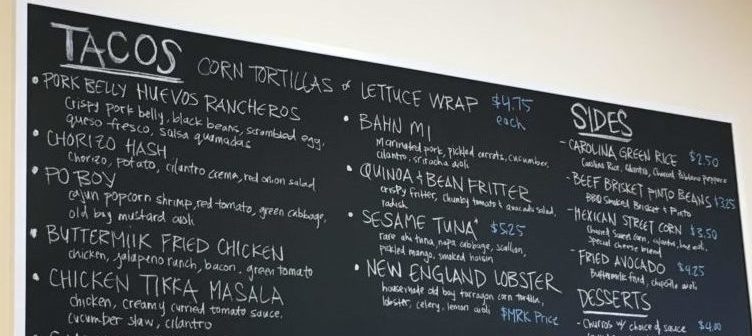 TACOS CORN TORTILLAS or LETTUCE WRAP $4.75 each
• PORK BELLY HUEVOS RANCHEROS
Crispy Pork belly, black beans, scrambled egg,
queso fresco, salsa quemadas
• CHORIZO HASH
Chorizo, potato, cilantro crema, red onion salad
• PO BOY
cajun popcorn shrimp, red tomato, green cabbage,
old bay mustard aioli
• BUTTERMILK FRIED CHICKEN
chicken, jalapeno ranch, bacon, green tomato
• CHICKEN TIKKA MASALA
chicken, creamy curried tomato sauce,
cucumber slaw, cilantro
• BAHN MI
Marinated pork, pickled carrots, cucumber,
cilantro, sriracha aioli
• QUINOA + BEAN FRITTER
crispy fritter, chunky tomato + avocado salad,
radish
• SESAME TUNA* $5.25
rare ahi tuna, napa cabbage, scallion,
pickled mango, smoked hoisin
• NEW ENGLAND LOBSTER
housemade old bay tarragon corn tortilla,
lobster, celery, lemon aioli $MRK Price
SIDES
- CAROLINA GREEN RICE $2.50
Carolina Rice, Cilantro, Charred Poblano peppers
- BEEF BRISKET PINTO BEANS $3.25
BBQ Smoked Brisket + Pinto
- MEXICAN STREET CORN $3.50
Charred sweet corn, cilantro, lime aioli,
special cheese blend
- FRIED AVOCADO $4.25
Buttermilk fried, chipotle aioli
DESSERTS
- Churros w/ choice of sauce $4.00